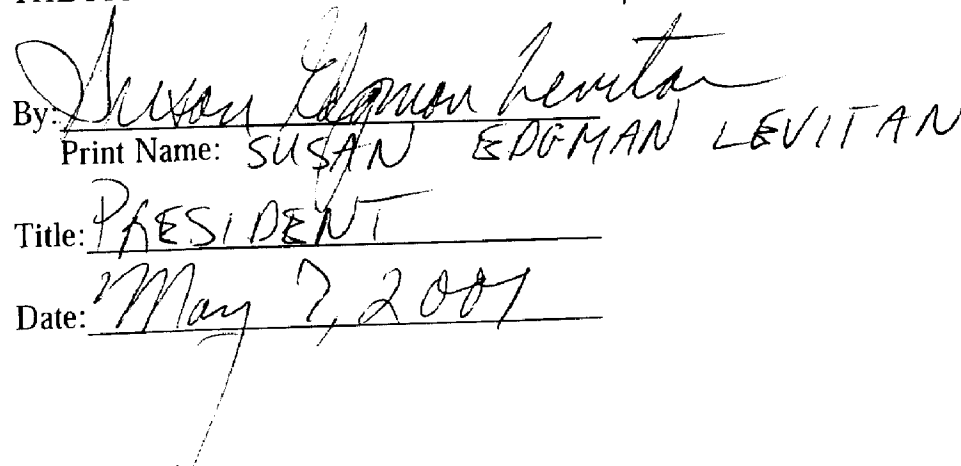 By: Susan Edgman Levitan
Print Name: SUSAN EDGMAN LEVITAN
Title: PRESIDENT
Date: May 7, 2001